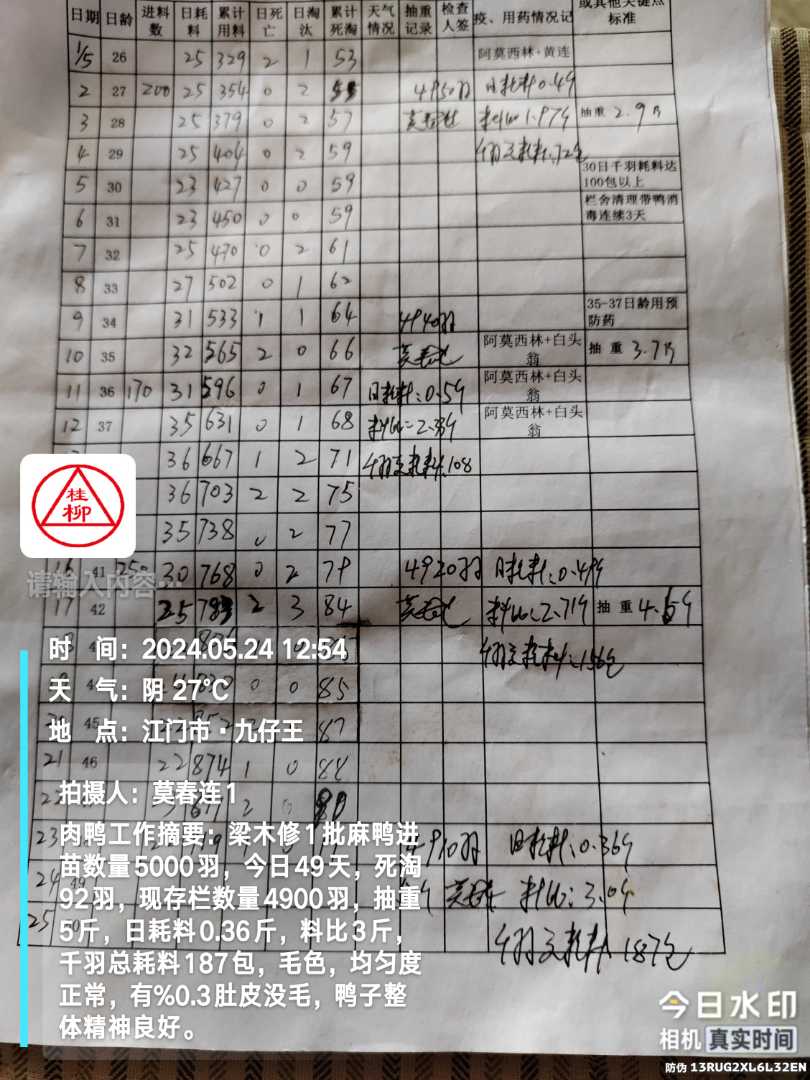 日期 日龄 进料数 日耗料 累计用料 日死亡 日淘汰 累计死淘 天气情况 抽重记录 检查人签 疫、用药情况记 或其他关键点标准
1/5 26 25 329 2 1 53 阿莫西林+黄连
2 27 200 25 354 0 2 4950羽 日耗料0.49
3 28 25 379 0 2 57 莫春连 料比1.979 抽重 2.9斤
4 29 25 404 0 2 59 千羽支耗料
30日千羽耗料达100包以上
5 30 23 427 0 0 59
栏舍清理带鸭消毒连续3天
6 31 23 450 0 0 59
7 32 25 470 0 2 61
8 33 27 502 0 1 62
35-37日龄用预防药
9 34 31 533 1 1 64 4940羽
10 35 32 565 2 0 66 莫春连 阿莫西林+白头翁 抽重 3.7斤
11 36 170 31 596 0 1 67 日耗料:0.59 阿莫西林+白头翁
12 37 35 631 0 1 68 料比 阿莫西林+白头翁
36 667 1 2 71 千羽支耗料108
36 703 2 2 75
35 738 0 2 77
16 41 250 30 768 0 2 79 4920羽 日耗料:0.499
17 42 25 2 3 84 莫春连 料比:2.719 抽重
千羽支耗料:156包
0 0 85
45 87
21 46 22 874 1 0 88
23 4910羽 日耗料:0.369
24 莫春连 料比:3.09
25 千羽支耗料187包
桂柳
请输入内容…
时 间:2024.05.24 12:54
天 气:阴 27℃
地 点:江门市·九仔王
拍摄人:莫春连1
肉鸭工作摘要:梁木修1批麻鸭进
苗数量5000羽,今日49天,死淘
92羽,现存栏数量4900羽,抽重
5斤,日耗料0.36斤,料比3斤,
千羽总耗料187包,毛色,均匀度
正常,有%0.3肚皮没毛,鸭子整
体精神良好。
今日水印
相机 真实时间
防伪 13RUG2XL6L32EN